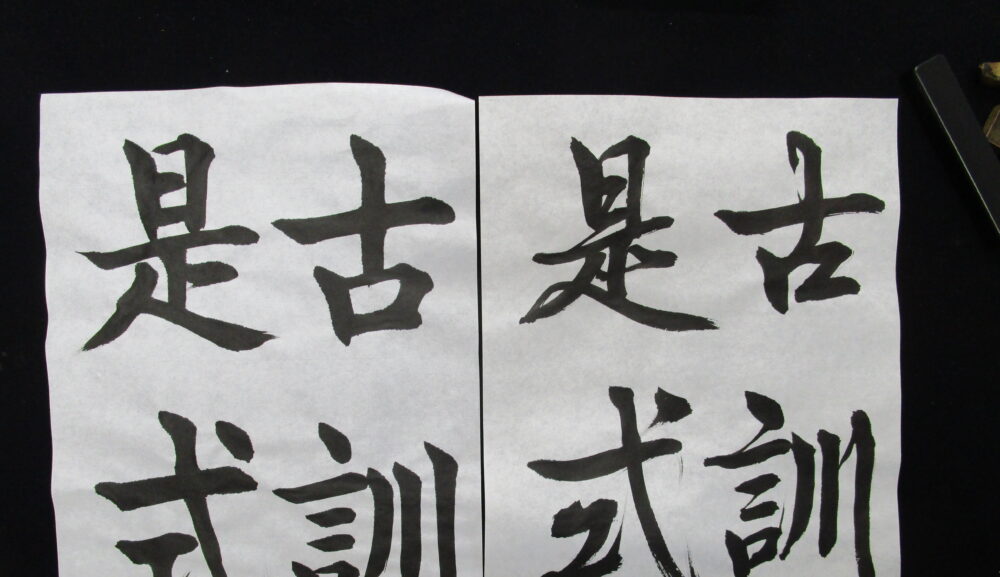 古訓
是式
古訓
是式